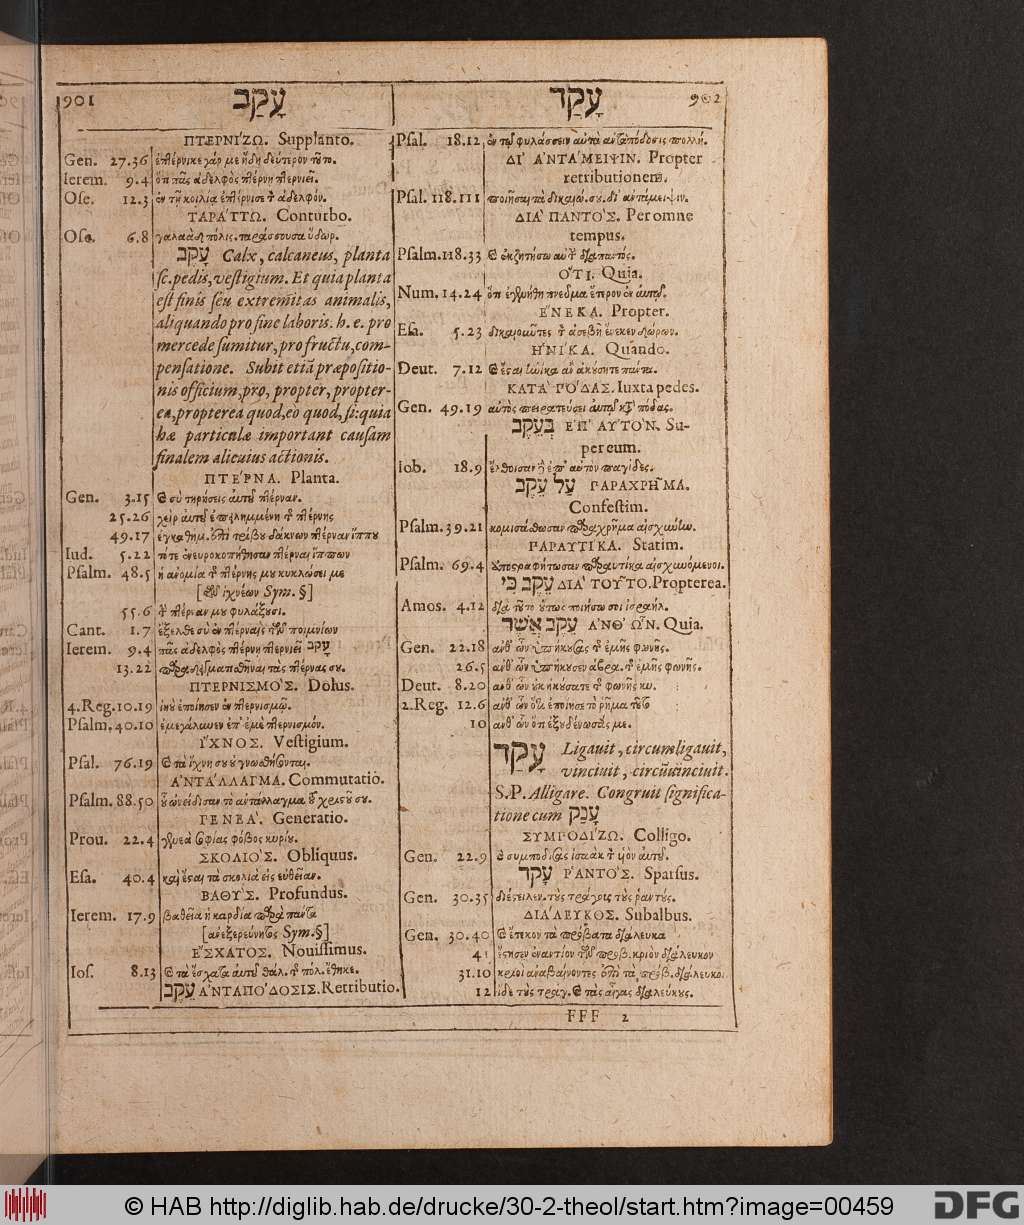 901 עָקַב
ΠΤΕΡΝΙΖΩ. Supplanto.
Gen. 27.36 ἐπτέρνικε γάρ με ἤδη δεύτερον τοῦτο.
Ierem. 9.4 ὅτι πᾶς ἀδελφὸς πτέρνῃ πτερνιεῖ.
Ose. 12.3 ἐν τῇ κοιλίᾳ ἐπτέρνισε τὸν ἀδελφόν.
ΤΑΡΑΤΤΩ. Conturbo.
Ose. 6.8 γαλαὰδ πόλις. ταράσσουσα ὕδωρ.
עָקֵב Calx, calcaneus, planta
sc. pedis, vestigium. Et quia planta
est finis seu extremitas animalis,
aliquando pro fine laboris. h. e. pro
mercede sumitur, pro fructu, com-
pensatione. Subit etiã præpositio-
nis officium, pro, propter, propter-
ea, propterea quod, eo quod, si: quia
hæ particulæ important causam
finalem alicuius actionis.
ΠΤΕΡΝΑ. Planta.
Gen. 3.15 σὺ τηρήσεις αὐτοῦ πτέρναν.
25.26 χεὶρ αὐτοῦ ἐπειλημμένη τῆς πτέρνης
49.17 δάκνων πτέρναν ἵππου
Iud. 5.22 πτέρναι ἵππων
Psalm. 48.5 ἡ ἀνομία τῆς πτέρνης μου κυκλώσει με
[τῶν ἰχνέων Sym. §]
55.6 τὴν πτέρναν μου φυλάξουσι.
Cant. 1.7 ἔξελθε σὺ ἐν πτέρναις τῶν ποιμνίων
Ierem. 9.4 πᾶς ἀδελφὸς πτέρνῃ πτερνιεῖ עָקֹב
13.22 τὰς πτέρνας σου.
ΠΤΕΡΝΙΣΜΟΣ. Dolus.
4. Reg. 10.19 ἰηοὺ ἐποίησεν ἐν πτερνισμῷ.
Psalm. 40.10 ἐμεγάλυνεν ἐπ' ἐμὲ πτερνισμόν.
ΙΧΝΟΣ. Vestigium.
Psal. 76.19 τὰ ἴχνη σου οὐ γνωσθήσονται.
ΑΝΤΑΛΛΑΓΜΑ. Commutatiō.
Psalm. 88.50 οὗ ὠνείδισαν τὸ ἀντάλλαγμα τοῦ χριστοῦ σου.
ΓΕΝΕΑ. Generatio.
Prou. 22.4 γενεὰ σοφίας φόβος κυρίου.
ΣΚΟΛΙΟΣ. Obliquus.
Esa. 40.4 καὶ ἔσται τὰ σκολιὰ εἰς εὐθεῖαν.
ΒΑΘΥΣ. Profundus.
Ierem. 17.9 βαθεῖα ἡ καρδία παρὰ πάντα
[ἀνεξερεύνητος Sym. §]
ΕΣΧΑΤΟΣ. Nouissimus.
Ios. 8.13 τὰ ἔσχατα αὐτοῦ θάλ. τῆς πόλ. ἔθηκε.
עֵקֶב ΑΝΤΑΠΟΔΟΣΙΣ. Retributio.
עָקַד 902
Psal. 18.12 ἐν τῷ φυλάσσειν αὐτὰ ἀνταπόδοσις πολλή.
ΔΙ' ΑΝΤΑΜΕΙΨΙΝ. Propter
retributionem.
Psal. 118.111 ποιῆσαι τὰ δικαιώ. σου δι' ἀντάμειψιν.
ΔΙΑ ΠΑΝΤΟΣ. Per omne
tempus.
Psalm. 118.33 ἐκζητήσω αὐτὴν διαπαντός.
ΟΤΙ. Quia.
Num. 14.24 ὅτι ἐγενήθη πνεῦμα ἕτερον ἐν αὐτῷ.
ΕΝΕΚΑ. Propter.
Esa. 5.23 δικαιοῦντες τὸν ἀσεβῆ ἕνεκεν δώρων.
ΗΝΙΚΑ. Quando.
Deut. 7.12 ἔσται ἡνίκα ἂν ἀκούσητε πάντα.
ΚΑΤΑ ΠΟΔΑΣ. Iuxta pedes.
Gen. 49.19 αὐτὸς πειρατεύσει αὐτῶν κατὰ πόδας.
בְּעָקֵב ΕΠ' ΑΥΤΟΝ. Su-
per eum.
Iob. 18.9 ἔλθοισαν δὲ ἐπ' αὐτὸν παγίδες.
עַל עֵקֶב ΠΑΡΑΧΡΗΜΑ.
Confestim.
Psalm. 39.21 κομισάσθωσαν παραχρῆμα αἰσχύνην.
ΠΑΡΑΥΤΙΚΑ. Statim.
Psalm. 69.4 ἀποστραφήτωσαν παραυτίκα αἰσχυνόμενοι.
עֵקֶב כִּי ΔΙΑ ΤΟΥΤΟ. Propterea.
Amos. 4.12 διὰ τοῦτο οὕτως ποιήσω σοι ἰσραήλ.
עֵקֶב אֲשֶׁר ΑΝΘ' ΩΝ. Quia.
Gen. 22.18 ἀνθ' ὧν ὑπήκουσας τῆς ἐμῆς φωνῆς.
26.5 ἀνθ' ὧν ὑπήκουσεν ἀβρα. τῆς ἐμῆς φωνῆς.
Deut. 8.20 ἀνθ' ὧν οὐκ ἠκούσατε τῆς φωνῆς κυ.
2. Reg. 12.6 ἀνθ' ὧν ὅτι ἐποίησε τὸ ῥῆμα τοῦτο
10 ἀνθ' ὧν ὅτι ἐξουδένωσάς με.
עָקַד Ligauit, circumligauit,
vinciuit, circũuinciuit.
S.P. Alligare. Congruit significa-
tione cum עָנַק
ΣΥΜΠΟΔΙΖΩ. Colligo.
Gen. 22.9 συμποδίσας ἰσαὰκ τὸν υἱὸν αὐτοῦ.
עָקֹד ΡΑΝΤΟΣ. Sparsus.
Gen. 30.35 διέστειλεν. τοὺς τράγους τοὺς ῥαντούς.
ΔΙΑΛΕΥΚΟΣ. Subalbus.
Gen. 30.40 ἔτεκον τὰ πρόβατα διάλευκα
41 ἔστησεν ἐναντίον τῶν προβ. κριὸν διάλευκον
31.10 κριοὶ ἀναβαίνοντες ἐπὶ τὰ πρόβ. διάλευκοι
12 ἴδε τοὺς τραγ. τὰς αἶγας διαλεύκους.
FFF 2
© HAB http://diglib.hab.de/drucke/30-2-theol/start.htm?image=00459
DFG